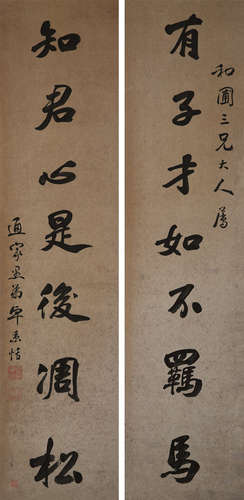 和圃三兄大人属
有子才如不羈馬
知君心是後凋松
通家愚弟卓景